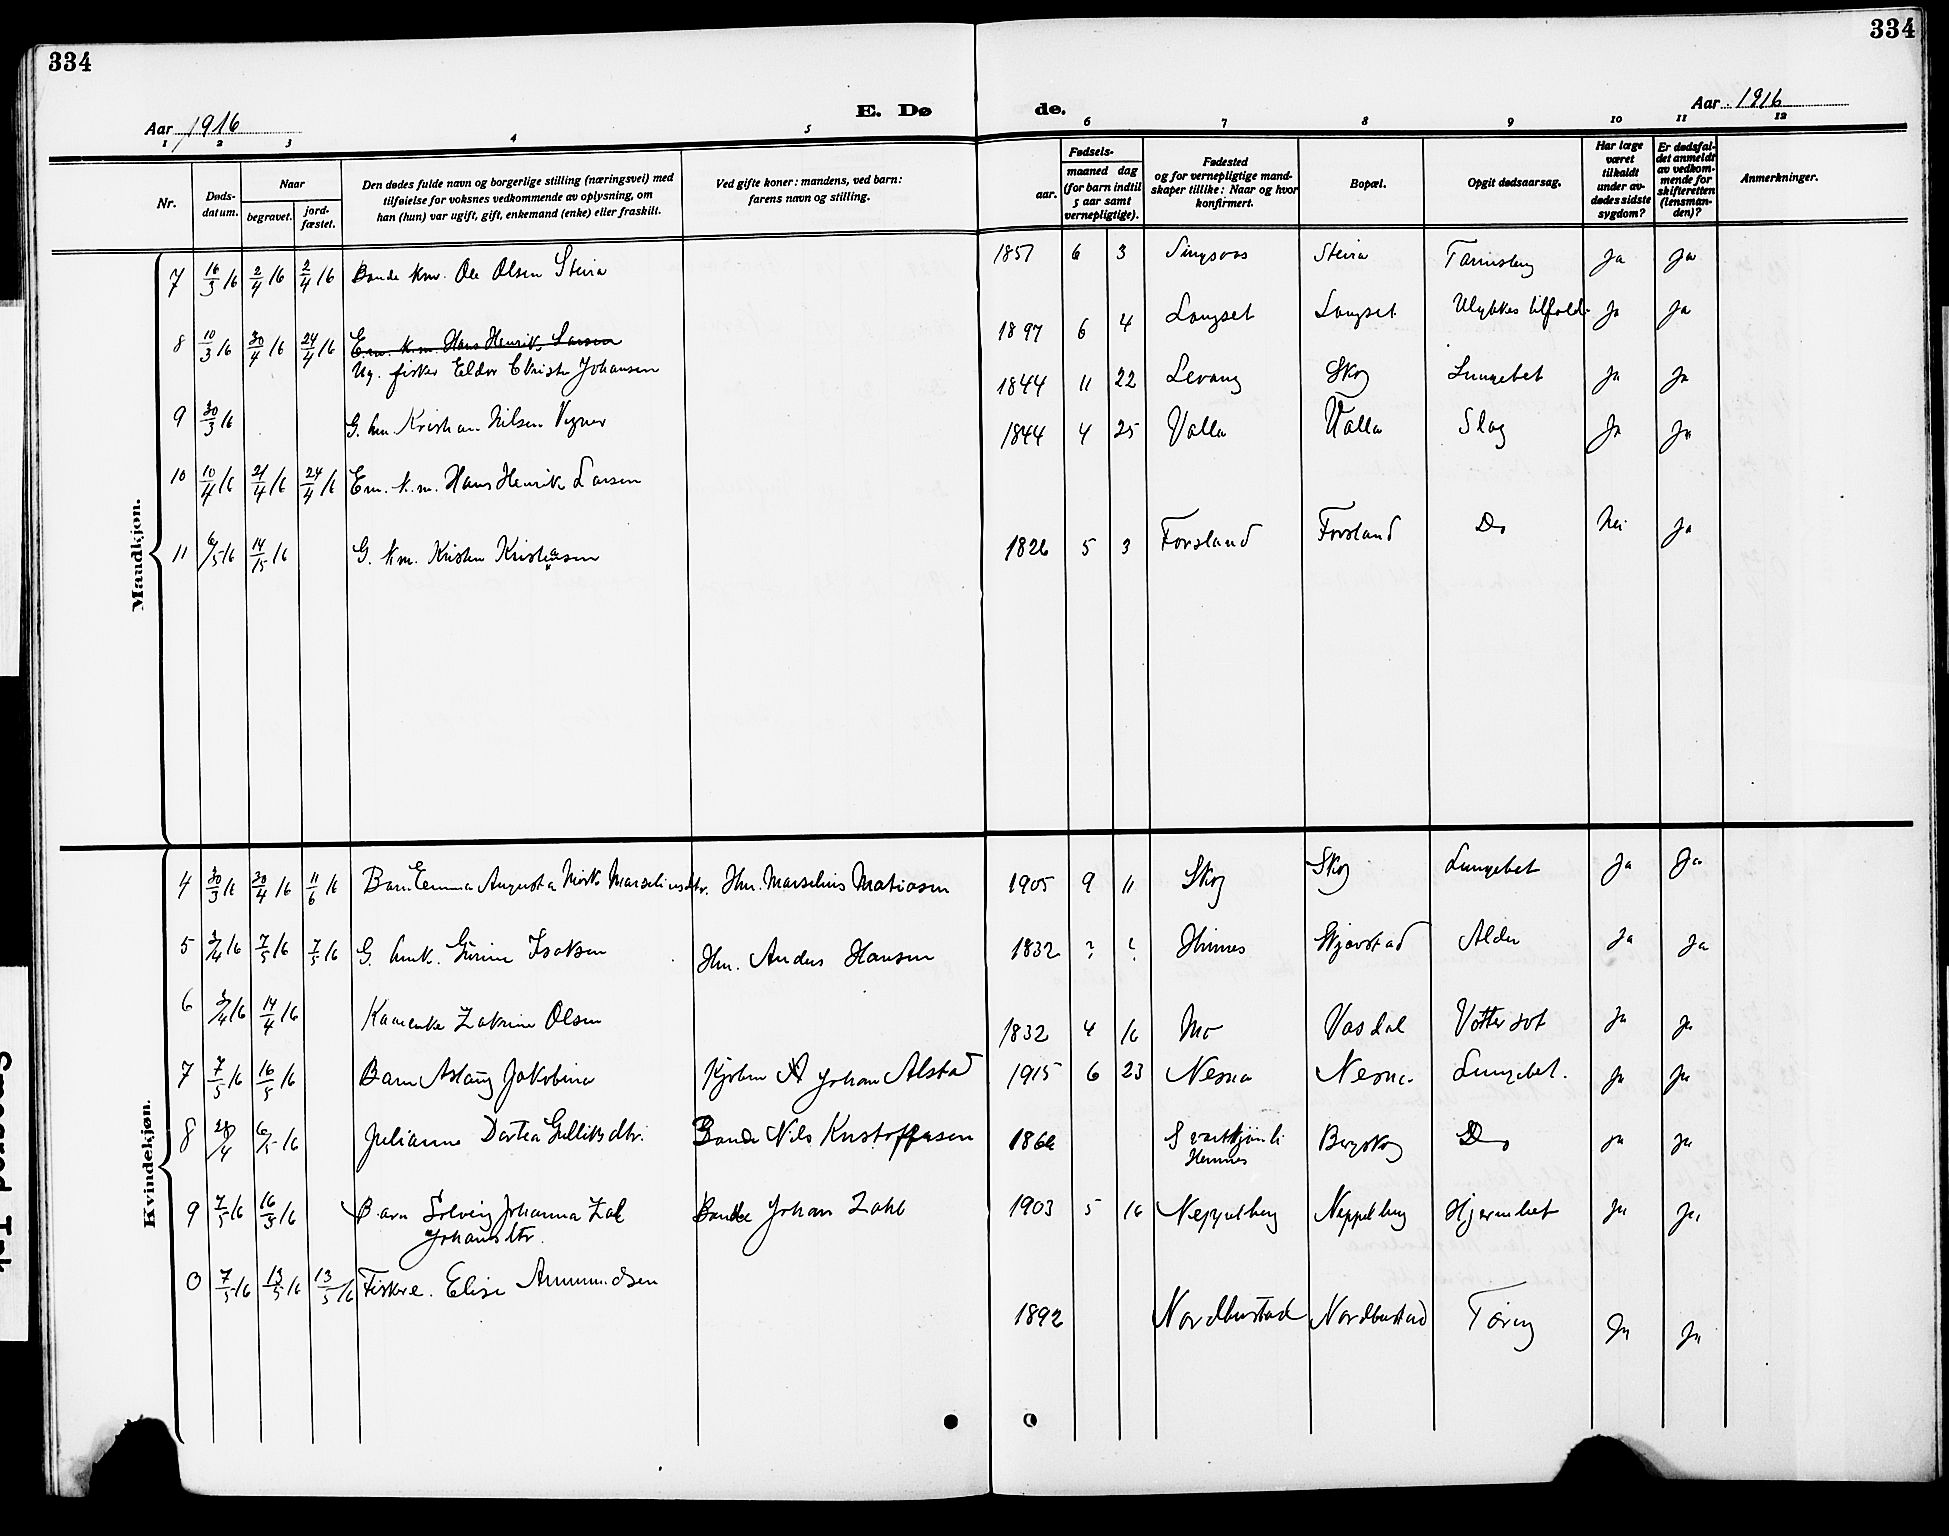 334
334
E. Dø de.
Aar 1916
Aar 1916
1 2 3 4 5 6 7 8 9 10 11 12
Nr.
Døds-datum.
Naar
begravet.
jord-fæstet.
Den dødes fulde navn og borgerlige stilling (næringsvei) med
tilføielse for voksnes vedkommende av oplysning, om
han (hun) var ugift, gift, enkemand (enke) eller fraskilt.
Ved gifte koner: mandens, ved barn:
farens navn og stilling.
Fødsels-
aar.
maaned dag
(for barn indtil
5 aar samt
vernepligtige).
Fødested
og for vernepligtige mand-
skaper tillike: Naar og hvor
konfirmert.
Bopæl.
Opgit dødsaarsag.
Har læge
været
tilkaldt
under av-
dødes sidste
sygdom?
Er dødsfal-
det anmeldt
av vedkom-
mende for
skifteretten
(lensman-
den)?
Anmerkninger.
Mandkjøn.
7 16/3 16 2/4 16 2/4 16 Bonde Ole Olsen Steira 1857 6 3 Steira Ja Ja
8 10/3 16 30/4 16 24/4 16 Em. k.m. Hans Henrik Larsen
Ug. fisker Eldor Johansen 1897 6 4 Langset Langset Ulykkes tilfeld. Ja Ja
9 30/3 16 G. Kristian Nilsen 1844 11 22 Levang Skog Lungebet Ja Ja
10 10/4 16 21/4 16 24/4 16 Em. k.m. Hans Henrik Larsen 1844 4 25 Valla Valla Slag Ja Ja
11 6/5 16 14/5 16 G. km. Kristen Kristiansen 1826 5 3 Forsland Forsland Do Nei Ja
Kvindekjøn.
4 30/3 16 30/4 16 11/6 16 Barn Emma Augusta Marseliusdtr. Hm. Marselius Matiasen 1905 9 11 Skog Skog Lungebet Ja Ja
5 3/4 16 7/5 16 7/5 16 G. Isaksen Hm. Anders Hansen 1832 ? ? Alder Ja Ja
6 3/4 16 14/4 16 Zakrine Olsen 1832 4 16 Mo Vasdal Vattersot Ja Ja
7 7/5 16 16/5 16 Barn Aslaug Jakobine Johan Alstad 1915 6 23 Nesna Nesna Lungebet. Ja Ja
8 28/4 6/5 16 Julianne Dortea Gulliksdtr. Bonde Nils Kristoffersen 1866 Hemnes Do Ja Ja
9 7/5 16 16/5 16 Barn Solveig Johanna Zal
Johansdtr. Bonde Johan Zahl 1903 5 16 Neppelberg Neppelberg Ja Ja
0 7/5 16 13/5 16 13/5 16 Elise Ammundsen 1892 Nordbustad Nordbustad Tæring Ja Ja